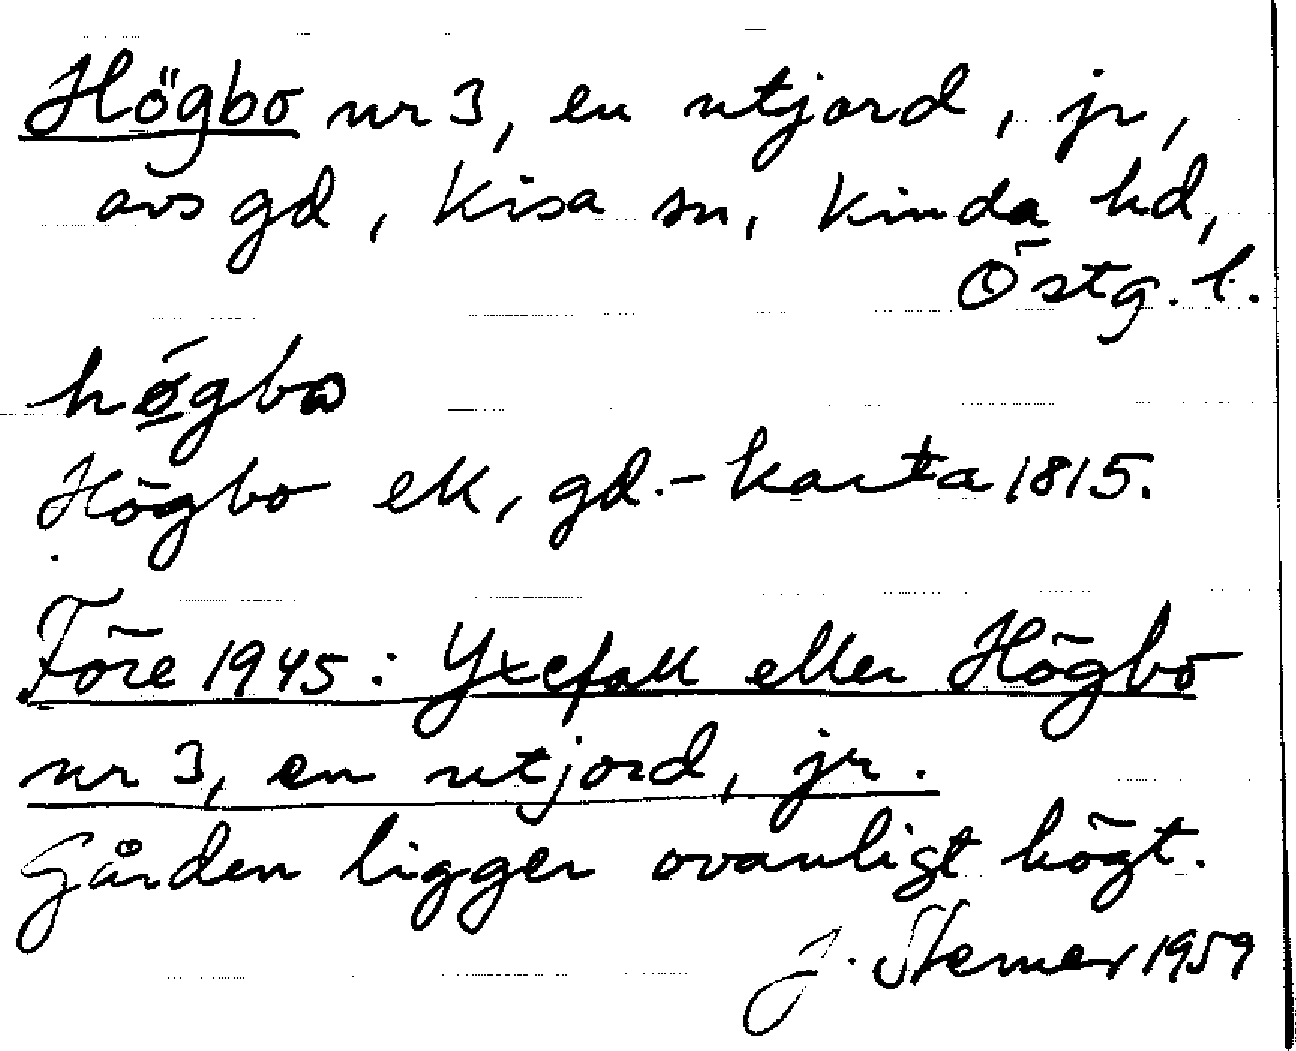 Högbo nr 3, en utjord, jr,
avs gd, Kisa sn, Kinda hd,
Östg. l.
högbo
Högbo ek, gd.- karta 1815.
Före 1945: Yxefall eller Högbo
nr 3, en utjord, jr.
Gården ligger ovanligt högt.
J. Sterner 1959